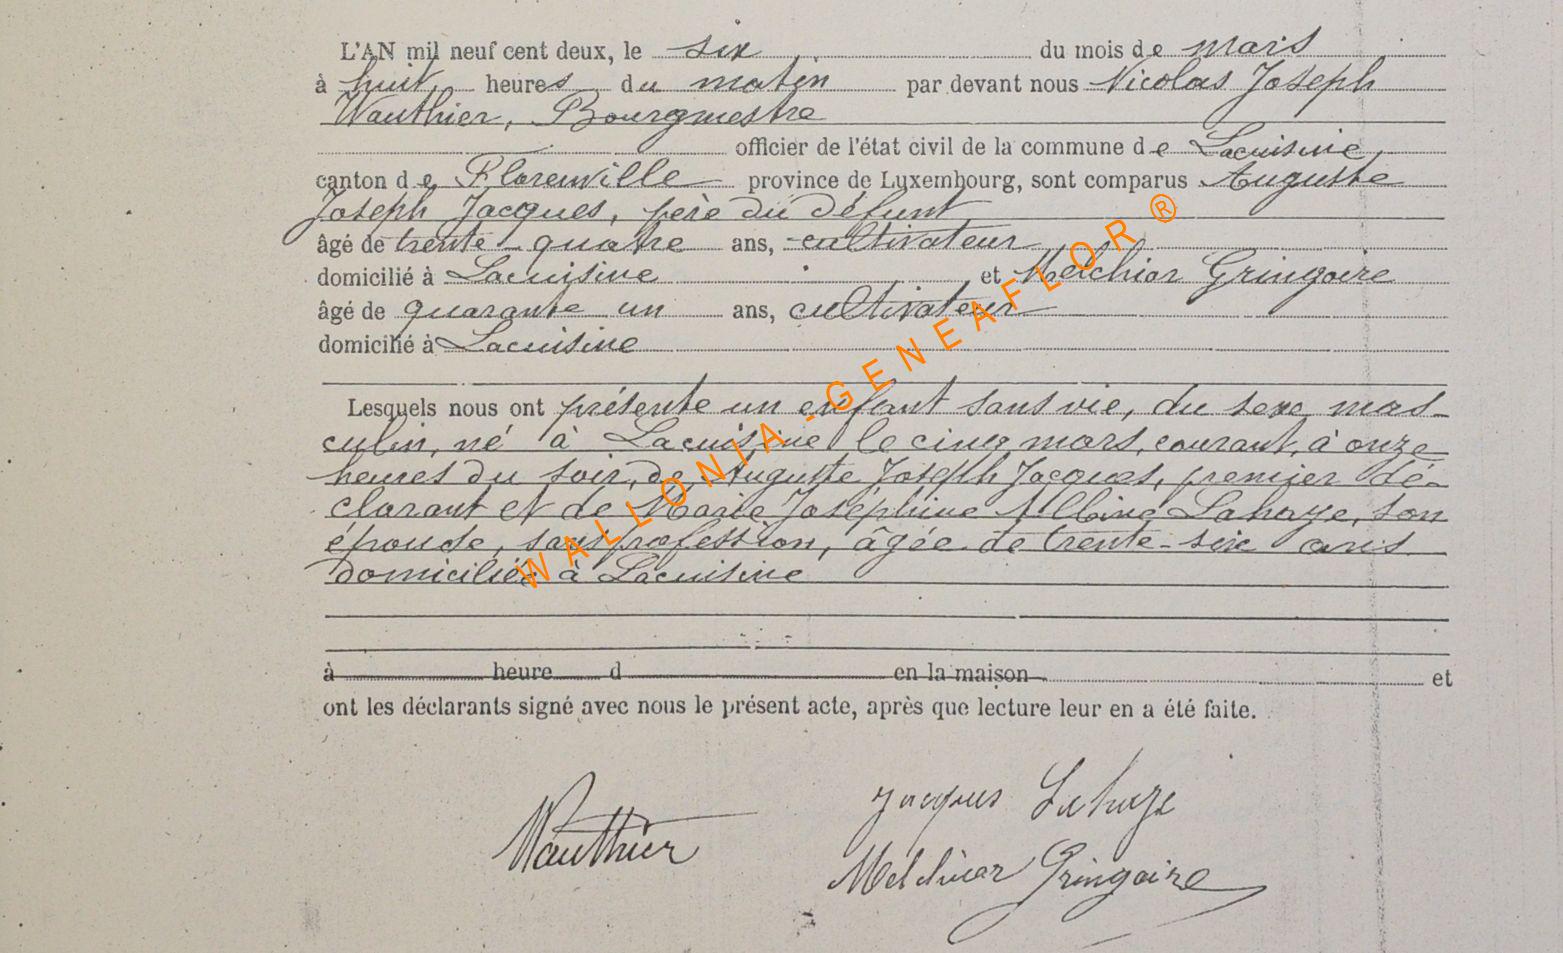 L'AN mil neuf cent deux, le six du mois de mars
à huit heures du matin par devant nous Nicolas Joseph
Wauthier, Bourgmestre
officier de l'état civil de la commune de Lacuisine
canton de Florenville province de Luxembourg, sont comparus Auguste
Joseph Jacques, père du défunt
âgé de trente-quatre ans, cultivateur
domicilié à Lacuisine et Melchior Gringoire
âgé de quarante un ans, cultivateur
domicilié à Lacuisine
Lesquels nous ont présenté un enfant sans vie, du sexe mas-
culin, né à Lacuisine le cinq mars, courant, à onze
heures du soir, de Auguste Joseph Jacques, premier dé-
clarant et de Marie Joséphine Albine Lahaye, son
épouse, sans profession, âgée de trente-six ans
domiciliée à Lacuisine
à heure d en la maison et
ont les déclarants signé avec nous le présent acte, après que lecture leur en a été faite.
Jacques Lahaye
Wauthier
Melchior Gringoire
WALLONIA-GENEAFLOR ®